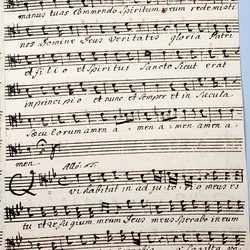 manus tuas Commendo Spiritum meum redemisti
nos Domine Deus Veritatis gloria Patri
et filio et Spiritui Sancto Sicut erat
in principio et nunc et Semper et in Sæcula
Sæculorum amen a men a men amen a
men. Allo:
Qui habitat in adjutorio meus es
tu et refugium meum Deus meus Sperabo in eum